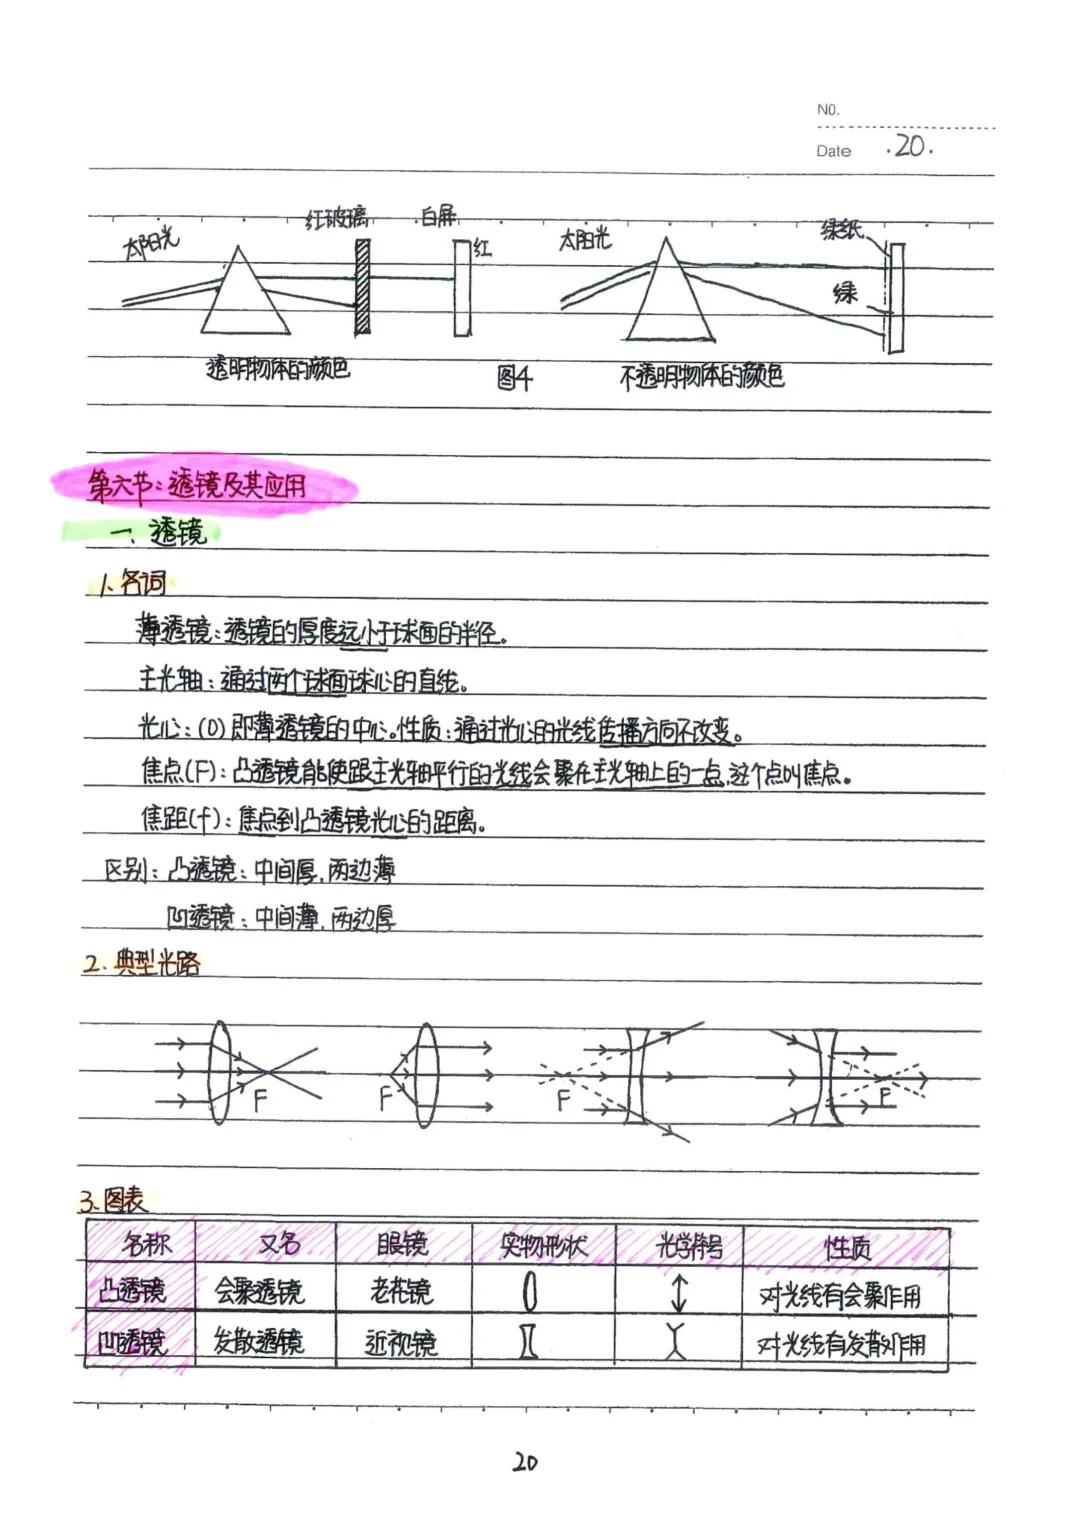 NO.
Date ·20·
太阳光 红玻璃 白屏 红 太阳光 绿纸 绿
透明物体的颜色 图4 不透明物体的颜色
第六节:透镜及其应用
一、透镜
1、名词
薄透镜:透镜的厚度远小于球面的半径。
主光轴:通过两个球面球心的直线。
光心:(O)即薄透镜的中心。性质:通过光心的光线传播方向不改变。
焦点(F):凸透镜能使跟主光轴平行的光线会聚在主光轴上的一点,这个点叫焦点。
焦距(f):焦点到凸透镜光心的距离。
区别:凸透镜:中间厚,两边薄
凹透镜:中间薄,两边厚
2.典型光路
F F F F
3.图表
名称 又名 眼镜 实物形状 光学符号 性质
凸透镜 会聚透镜 老花镜 对光线有会聚作用
凹透镜 发散透镜 近视镜 对光线有发散作用
20